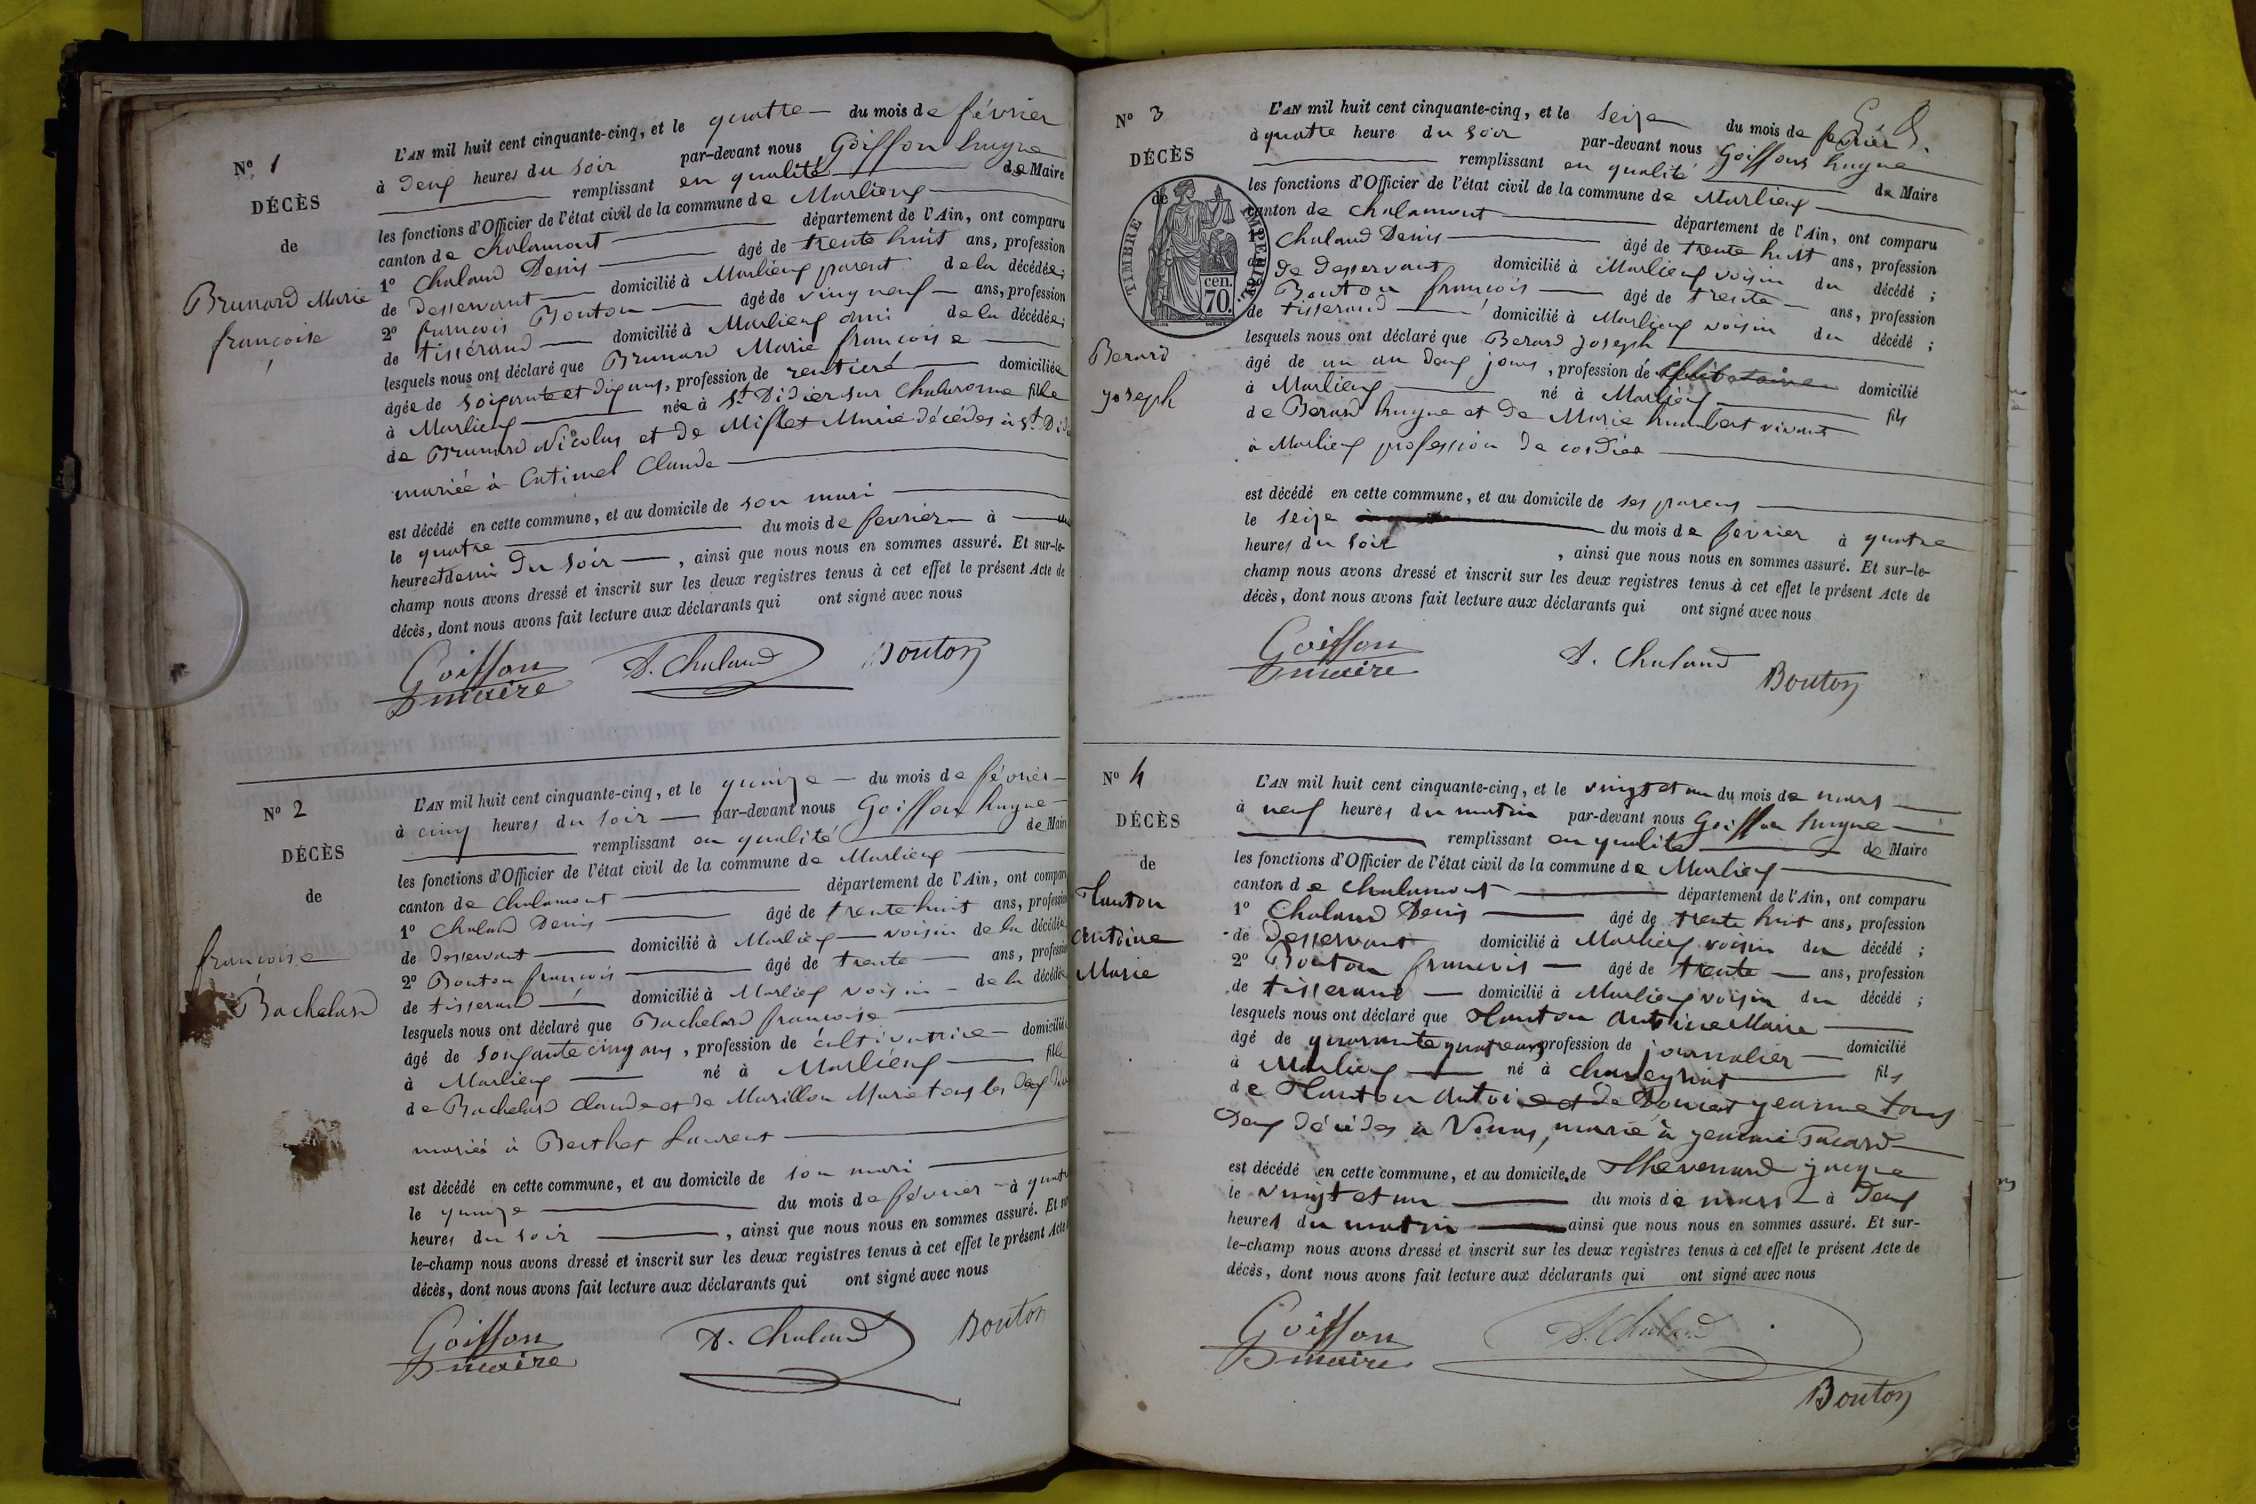 N° 1
DÉCÈS
de
Brunard Marie
françoise
L'AN mil huit cent cinquante-cinq, et le quatre du mois de février
à deux heures du soir par-devant nous Goiffon hugne
remplissant en qualité de Maire
les fonctions d'Officier de l'état civil de la commune de Marlieux
canton de Chalamont département de l'Ain, ont comparu
1° Chaland Denis âgé de trente huit ans, profession
de desservant domicilié à Marlieux parent de la décédée;
2° françois Bouton âgé de vingneuf ans, profession
de tissérand domicilié à Marlieux ami de la décédée;
lesquels nous ont déclaré que Brunard Marie françoise
âgée de soixante et dix ans, profession de rentière domiciliée
à Marlieux née à St Didier sur Chalaronne fille
de Brunard Nicolas et de Miflet Marie décédés à St Did
mariée à Catimel Claude
est décédé en cette commune, et au domicile de son mari
le quatre du mois de fevrier à un
heure et demi du soir, ainsi que nous nous en sommes assuré. Et sur-le-
champ nous avons dressé et inscrit sur les deux registres tenus à cet effet le présent Acte de
décès, dont nous avons fait lecture aux déclarants qui ont signé avec nous
Goiffon D. Chaland Bouton
maire
N° 2
DÉCÈS
de
françoise
Bachelard
L'AN mil huit cent cinquante-cinq, et le quinze du mois de février
à cinq heures du soir par-devant nous Goiffon hugne
remplissant en qualité de Mair
les fonctions d'Officier de l'état civil de la commune de Marlieux
canton de Chalamont département de l'Ain, ont compar
1° Chaland Denis âgé de trente huit ans, profession
de desservant domicilié à Marlieux voisin de la décédée
2° Bouton françois âgé de trente ans, profession
de tisserand domicilié à Marlieux voisin de la décédée
lesquels nous ont déclaré que Bachelard francoise
âgé de soixante cinq ans, profession de cultivatrice domicilié
à Marlieux né à Marlieux fille
de Bachelard Claude et de Marillon Marie tous les deux
mariée à Berthet Laurent
est décédé en cette commune, et au domicile de son mari
le quinze du mois de février à quatr
heures du soir, ainsi que nous nous en sommes assuré. Et sur
le-champ nous avons dressé et inscrit sur les deux registres tenus à cet effet le présent Acte
décès, dont nous avons fait lecture aux déclarants qui ont signé avec nous
Goiffon D. Chaland Bouton
maire
N° 3
DÉCÈS
de
TIMBRE IMPERIAL
70 cen.
Berard
joseph
L'AN mil huit cent cinquante-cinq, et le seize du mois de fevrier
à quatre heure du soir par-devant nous Goiffons hugne
remplissant en qualité de Maire
les fonctions d'Officier de l'état civil de la commune de Marlieux
canton de Chalamont département de l'Ain, ont comparu
Chaland Denis âgé de trente huit ans, profession
de desservant domicilié à Marlieux voisin du décédé;
Bouton françois âgé de trente ans, profession
de tisserand domicilié à Marlieux voisin du décédé;
lesquels nous ont déclaré que Berard joseph
âgé de un an deux jours, profession de celibataire domicilié
à Marlieux né à Marlieux fils
de Berard hugne et de Marie humbert vivant
à Marlieux profession de cordier
est décédé en cette commune, et au domicile de ses parens
le seize du mois de fevrier à quatre
heures du soir, ainsi que nous nous en sommes assuré. Et sur-le-
champ nous avons dressé et inscrit sur les deux registres tenus à cet effet le présent Acte de
décès, dont nous avons fait lecture aux déclarants qui ont signé avec nous
Goiffon D. Chaland
maire Bouton
N° 4
DÉCÈS
de
Hanton
Antoine
Marie
L'AN mil huit cent cinquante-cinq, et le vingt et un du mois de mars
à neuf heures du matin par-devant nous Goiffon hugne
remplissant en qualité de Maire
les fonctions d'Officier de l'état civil de la commune de Marlieux
canton de Chalamont département de l'Ain, ont comparu
1° Chaland Denis âgé de trente huit ans, profession
de desservant domicilié à Marlieux voisin du décédé;
2° Bouton francois âgé de trente ans, profession
de tisserand domicilié à Marlieux voisin du décédé;
lesquels nous ont déclaré que Hanton Antoine Marie
âgé de quarante quatre ans, profession de journalier domicilié
à Marlieux né à chaveyriat fils
de Hanton Antoine et de jeanne tous
deux décédés à Vonnas, marié à jeanne Pacard
est décédé en cette commune, et au domicile de Thevenard jacque
le vingt et un du mois de mars à deux
heures du matin ainsi que nous nous en sommes assuré. Et sur-
le-champ nous avons dressé et inscrit sur les deux registres tenus à cet effet le présent Acte de
décès, dont nous avons fait lecture aux déclarants qui ont signé avec nous
Goiffon D. Chaland
maire Bouton